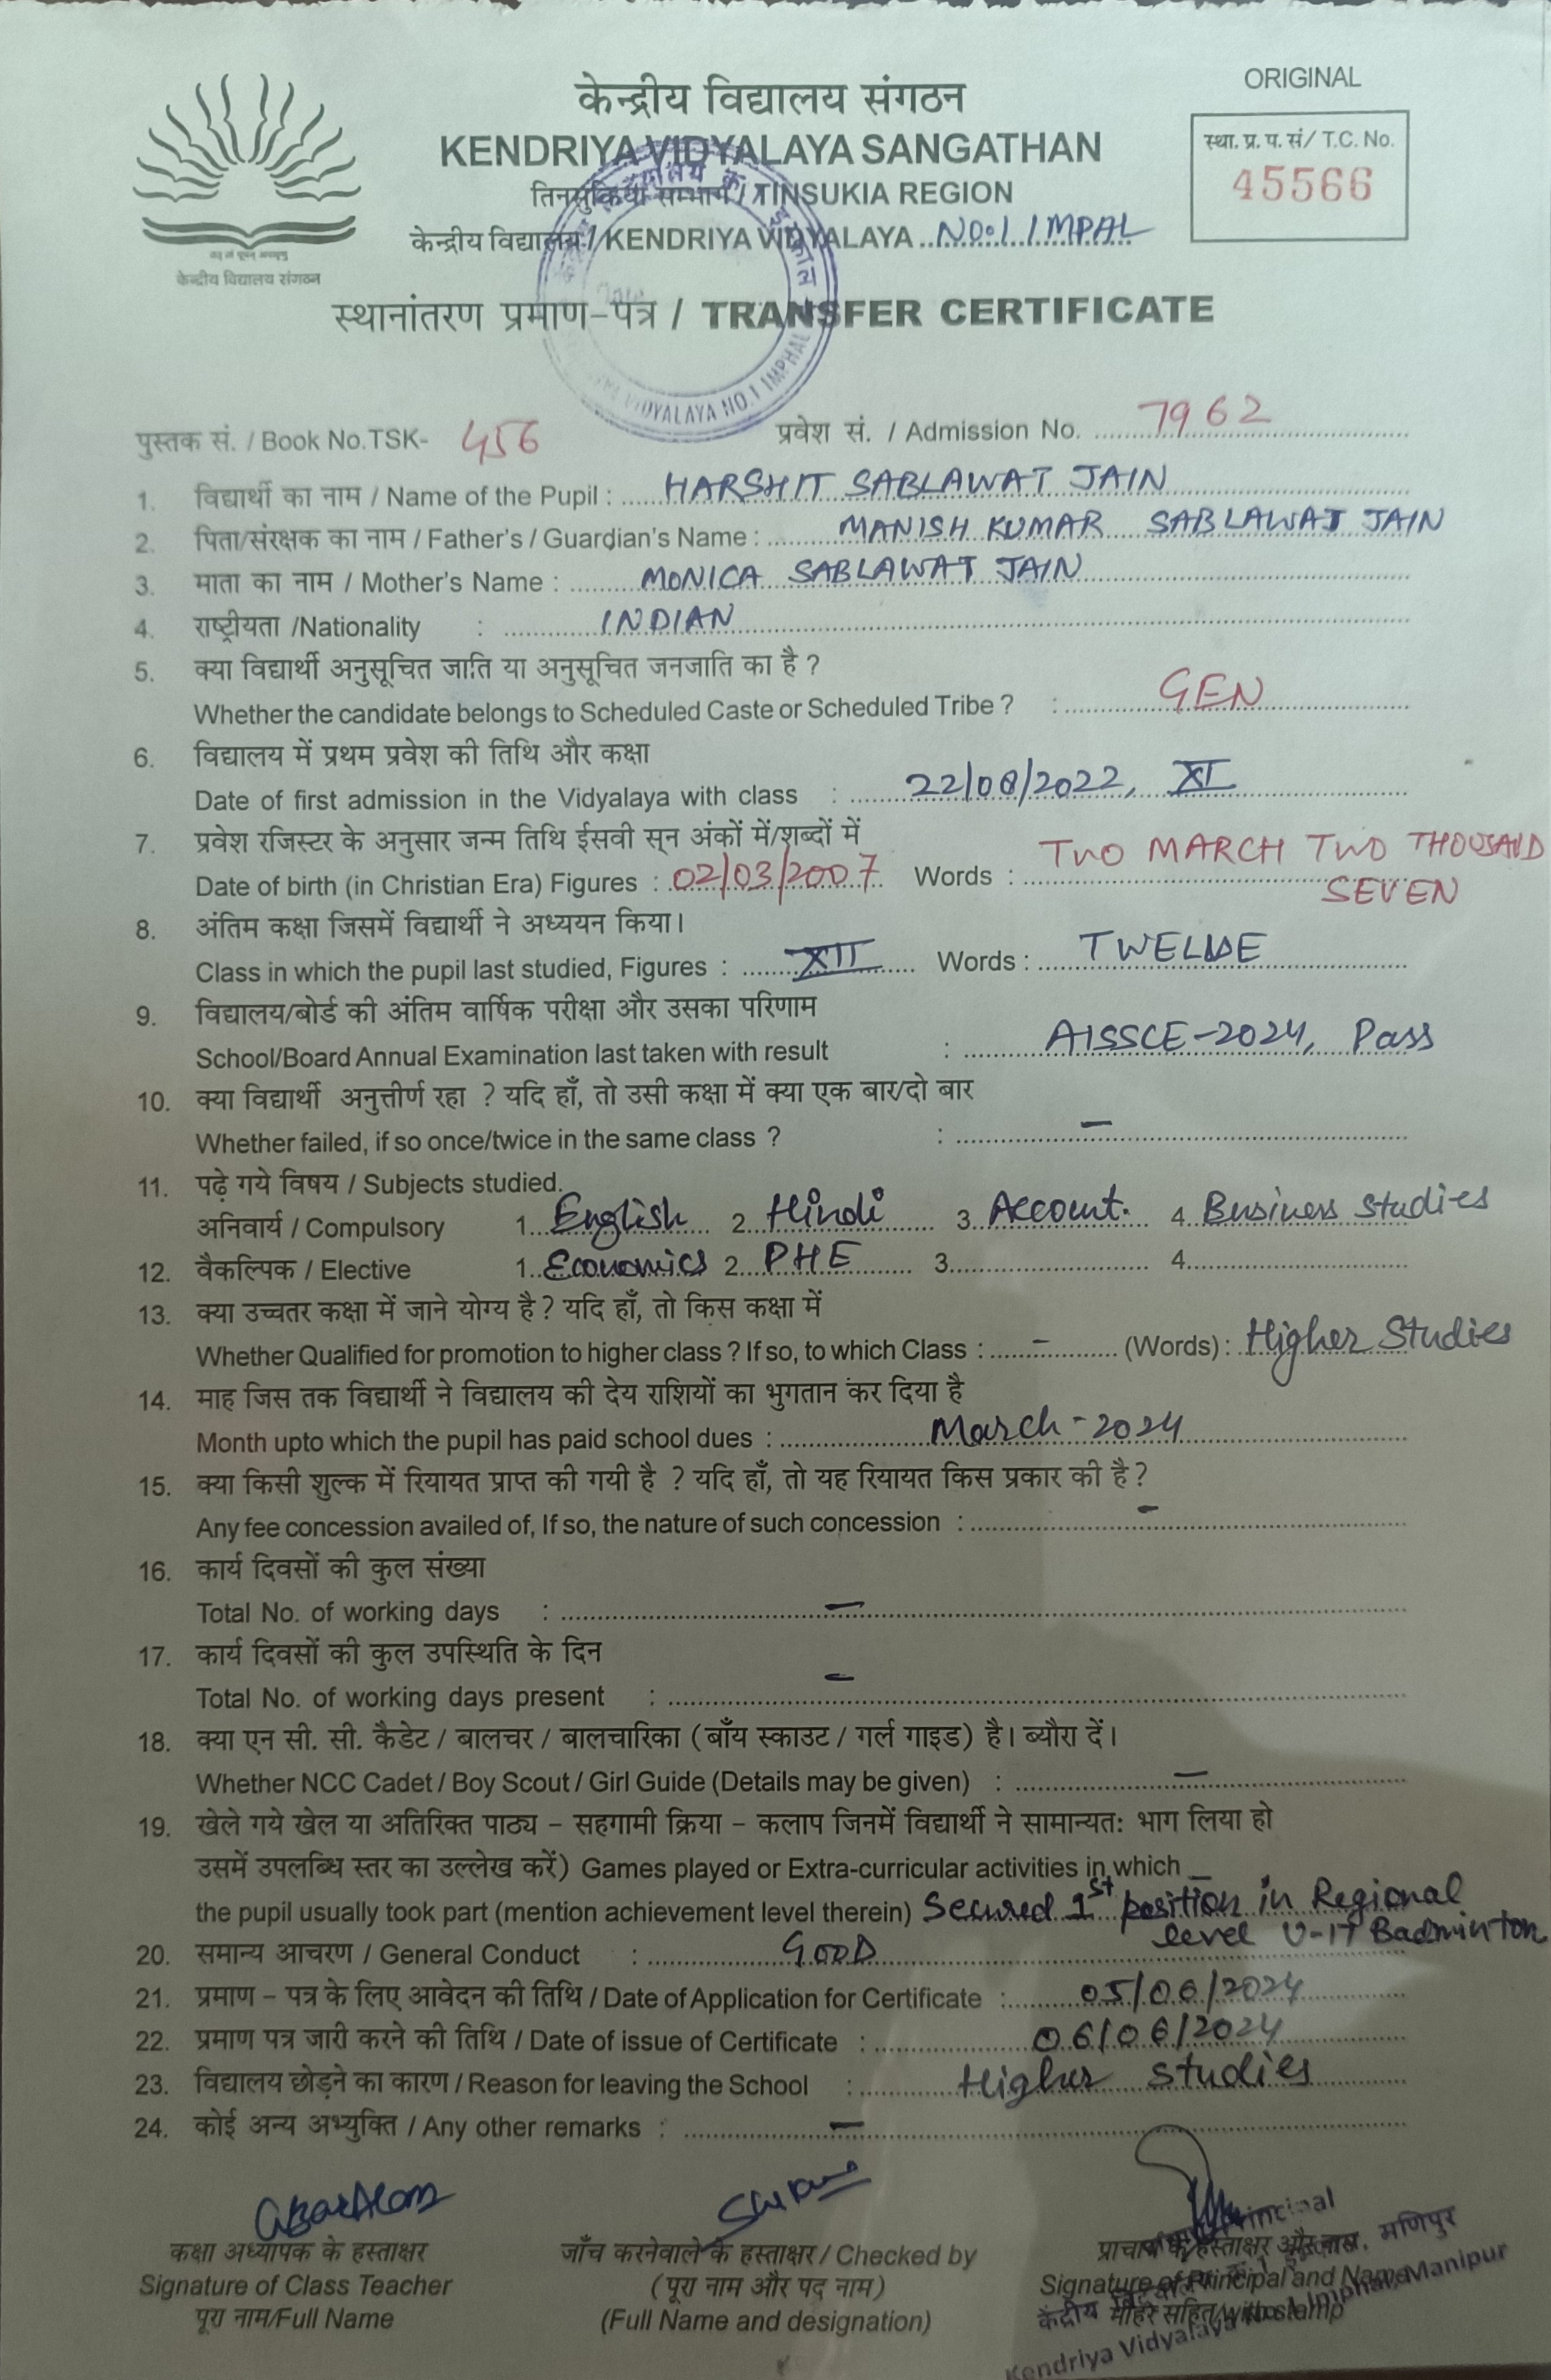 ORIGINAL
केन्द्रीय विद्यालय संगठन
KENDRIYA VIDYALAYA SANGATHAN
स्था. प्र. प. सं/ T.C. No.
45566
तिनसुकिया सम्भाग / TINSUKIA REGION
केन्द्रीय विद्यालय / KENDRIYA VIDYALAYA NO.1 IMPAL
केन्द्रीय विद्यालय संगठन
स्थानांतरण प्रमाण-पत्र / TRANSFER CERTIFICATE
VIDYALAYA NO.1 IMPHAL
पुस्तक सं. / Book No.TSK- 456 प्रवेश सं. / Admission No. 7962
1. विद्यार्थी का नाम / Name of the Pupil : HARSHIT SABLAWAT JAIN
2. पिता/संरक्षक का नाम / Father's / Guardian's Name : MANISH KUMAR SABLAWAT JAIN
3. माता का नाम / Mother's Name : MONICA SABLAWAT JAIN
4. राष्ट्रीयता /Nationality : INDIAN
5. क्या विद्यार्थी अनुसूचित जाति या अनुसूचित जनजाति का है ?
Whether the candidate belongs to Scheduled Caste or Scheduled Tribe ? : GEN
6. विद्यालय में प्रथम प्रवेश की तिथि और कक्षा
Date of first admission in the Vidyalaya with class : 22/08/2022, XI
7. प्रवेश रजिस्टर के अनुसार जन्म तिथि ईसवी सन अंकों में/शब्दों में
Date of birth (in Christian Era) Figures : 02/03/2007 Words : TWO MARCH TWO THOUSAND
SEVEN
8. अंतिम कक्षा जिसमें विद्यार्थी ने अध्ययन किया।
Class in which the pupil last studied, Figures : XII Words : TWELVE
9. विद्यालय/बोर्ड की अंतिम वार्षिक परीक्षा और उसका परिणाम
School/Board Annual Examination last taken with result : AISSCE-2024, Pass
10. क्या विद्यार्थी अनुत्तीर्ण रहा ? यदि हाँ, तो उसी कक्षा में क्या एक बार/दो बार
Whether failed, if so once/twice in the same class ? : –
11. पढ़े गये विषय / Subjects studied.
अनिवार्य / Compulsory 1. English 2. Hindi 3. Account. 4. Business Studies
12. वैकल्पिक / Elective 1. Economics 2. PHE 3. 4.
13. क्या उच्चतर कक्षा में जाने योग्य है ? यदि हाँ, तो किस कक्षा में
Whether Qualified for promotion to higher class ? If so, to which Class : – (Words) : Higher Studies
14. माह जिस तक विद्यार्थी ने विद्यालय की देय राशियों का भुगतान कर दिया है
Month upto which the pupil has paid school dues : March-2024
15. क्या किसी शुल्क में रियायत प्राप्त की गयी है ? यदि हाँ, तो यह रियायत किस प्रकार की है ?
Any fee concession availed of, If so, the nature of such concession : –
16. कार्य दिवसों की कुल संख्या
Total No. of working days : –
17. कार्य दिवसों की कुल उपस्थिति के दिन
Total No. of working days present : –
18. क्या एन सी. सी. कैडेट / बालचर / बालचारिका (बॉय स्काउट / गर्ल गाइड) है। ब्यौरा दें।
Whether NCC Cadet / Boy Scout / Girl Guide (Details may be given) : –
19. खेले गये खेल या अतिरिक्त पाठ्य – सहगामी क्रिया – कलाप जिनमें विद्यार्थी ने सामान्यत: भाग लिया हो
उसमें उपलब्धि स्तर का उल्लेख करें) Games played or Extra-curricular activities in which –
the pupil usually took part (mention achievement level therein) Secured 1st position in Regional
level U-17 Badminton
20. समान्य आचरण / General Conduct : GOOD
21. प्रमाण – पत्र के लिए आवेदन की तिथि / Date of Application for Certificate : 05/06/2024
22. प्रमाण पत्र जारी करने की तिथि / Date of issue of Certificate : 06/06/2024
23. विद्यालय छोड़ने का कारण / Reason for leaving the School : Higher studies
24. कोई अन्य अभ्युक्ति / Any other remarks : –
कक्षा अध्यापक के हस्ताक्षर जाँच करनेवाले के हस्ताक्षर / Checked by प्राचार्य के हस्ताक्षर और नाम
Signature of Class Teacher (पूरा नाम और पद नाम) Signature of Principal and Name
पूरा नाम/Full Name (Full Name and designation) मोहर सहित/with stamp
Principal
मणिपुर
केंद्रीय
Kendriya Vidyalaya No.1 Imphal, Manipur